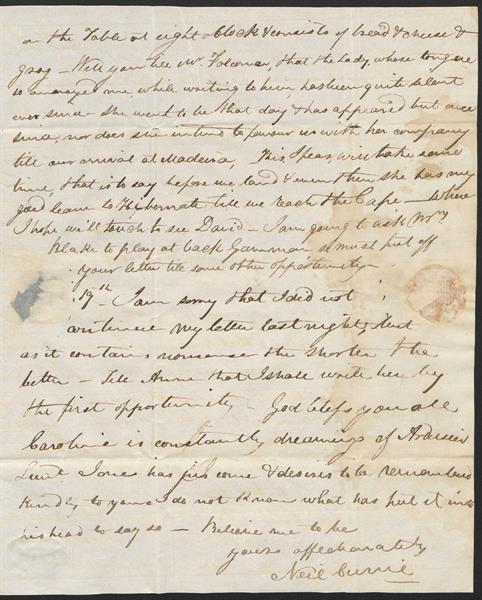 on the Table at eight o Clock & consists of bread & cheese &
grog — Will you tell Mr. that the Lady, whose tongue
so annoyed me, while writing to him has been quite silent
ever since — she went to bed that day & has appeared but once
since, nor does she intend to favour us with her company
till our arrival at Madeira, This I fear, will take some
time, that is to say before we land & even then she has my
good leave to Hibernate till we reach the Cape — where
I hope we'll touch to see David — I am going to ask Mrs
Blake to play at back Gammon so must put off
your letter till some other opportunity —
19th — I am sorry that I did not
continue my letter last night, but
as it contains nonsense the shorter the
better — Tell Anne that I shall write her by
the first opportunity — God bless you all
Caroline is constantly dreaming of
Lieut. Jones has just come & desires to be remembered
kindly to you & I do not know what has put it into
his head to say so — Believe me to be
yours affectionately
Neil Currie